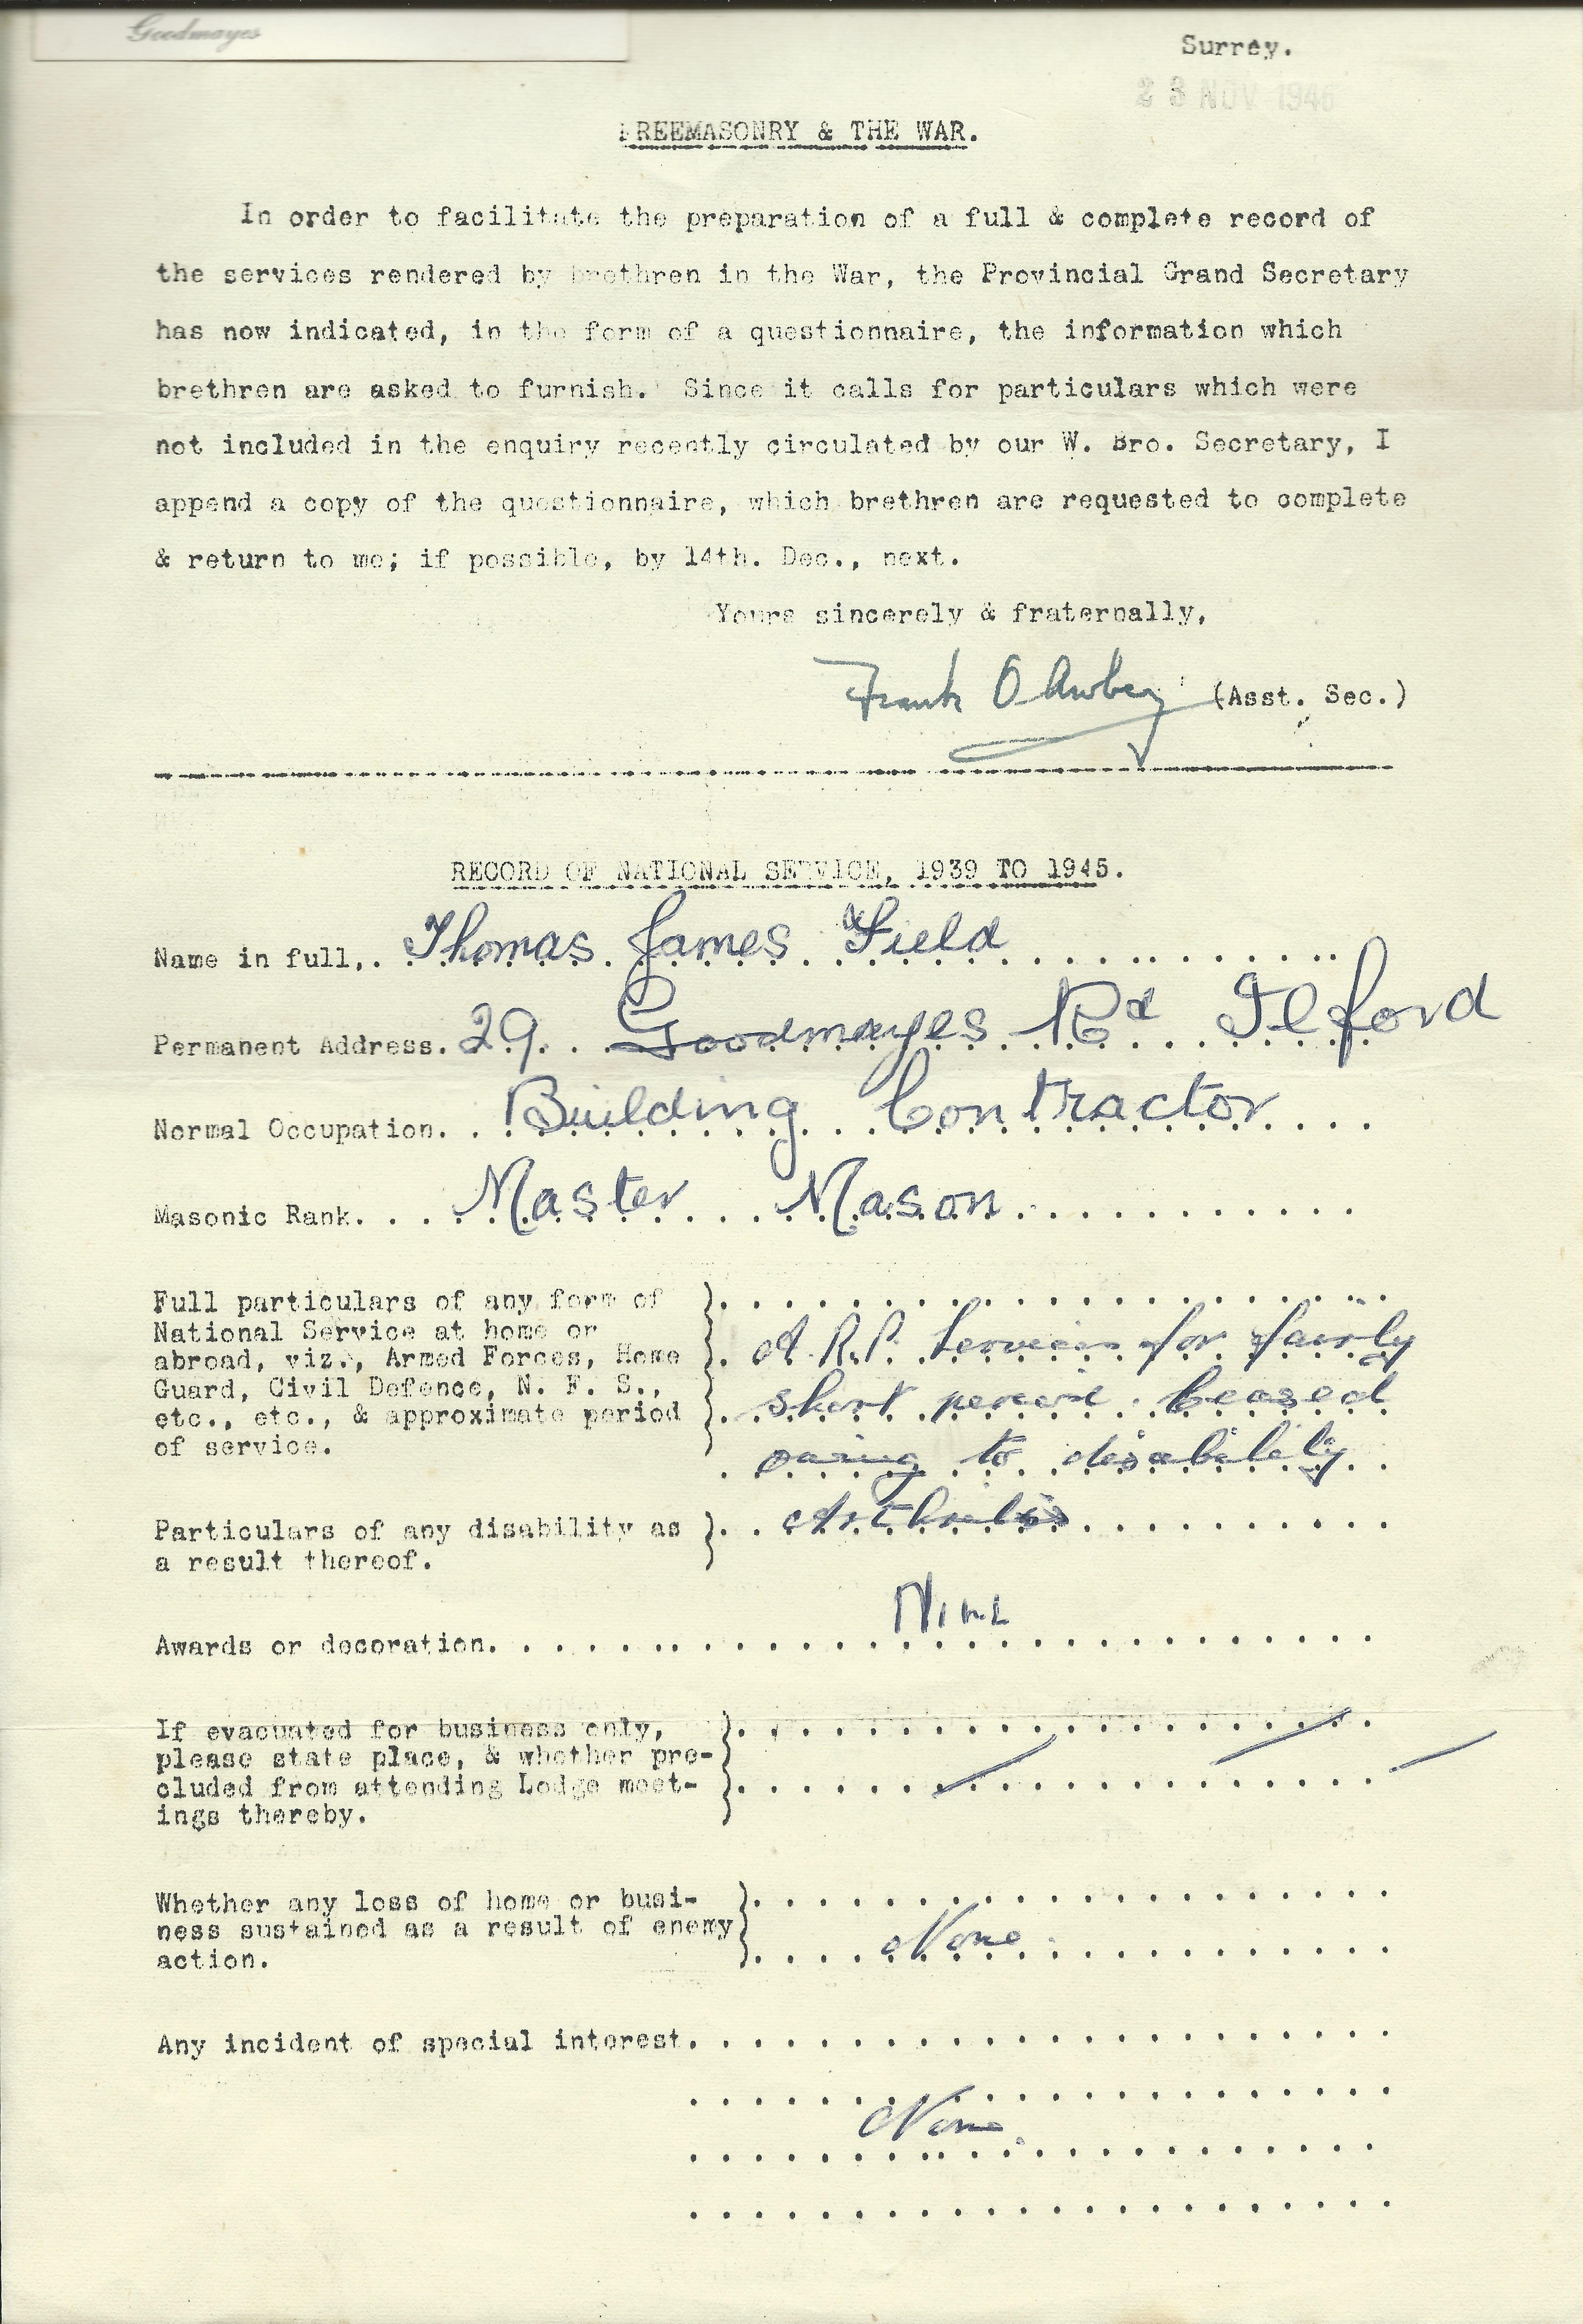 Goodmayes
Surrey.
23 NOV 1946
FREEMASONRY & THE WAR.
In order to facilitate the preparation of a full & complete record of
the services rendered by brethren in the War, the Provincial Grand Secretary
has now indicated, in the form of a questionnaire, the information which
brethren are asked to furnish. Since it calls for particulars which were
not included in the enquiry recently circulated by our W. Bro. Secretary, I
append a copy of the questionnaire, which brethren are requested to complete
& return to me; if possible, by 14th. Dec., next.
Yours sincerely & fraternally,
Frank O (Asst. Sec.)
RECORD OF NATIONAL SERVICE, 1939 TO 1945.
Name in full,. Thomas James Field
Permanent Address. 29. Goodmayes Rd Ilford
Normal Occupation. Building Contractor
Masonic Rank. Master Mason
Full particulars of any form of
National Service at home or
abroad, viz., Armed Forces, Home A.R.P. Services for fairly
Guard, Civil Defence, N. F. S.,
etc., etc., & approximate period short period. Ceased
of service.
owing to disability
Particulars of any disability as Arthritis
a result thereof.
Awards or decoration. Nine
If evacuated for business only,
please state place, & whether pre-
cluded from attending Lodge meet-
ings thereby.
Whether any loss of home or busi-
ness sustained as a result of enemy None
action.
Any incident of special interest.
None